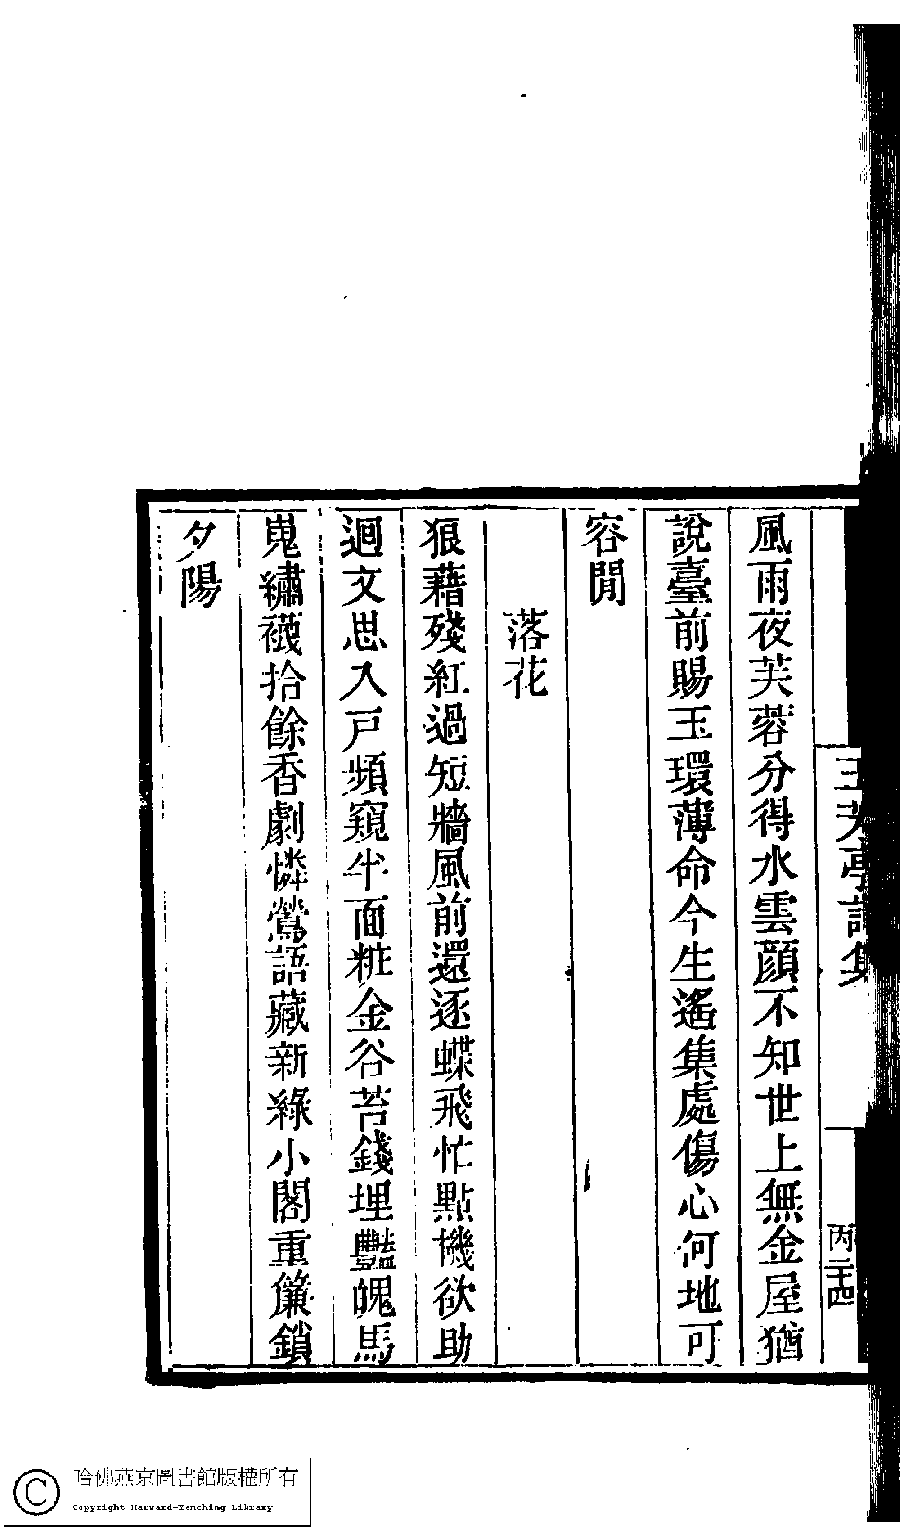 風雨夜芙蓉分得水雲顔不知世上無金屋猶
說臺前賜玉環薄命今生遙集處傷心何地可
容閒
落花
狼藉殘紅過短牆風前還逐蝶飛忙點機欲助
迴文思入戸頻窺半面粧金谷苔錢埋豔魄馬
嵬繡襪拾餘香劇憐鶯語藏新綠小閣重簾鎖
夕陽
丙二十四
哈佛燕京圖書館版權所有
Copyright Harvard-Yenching Library